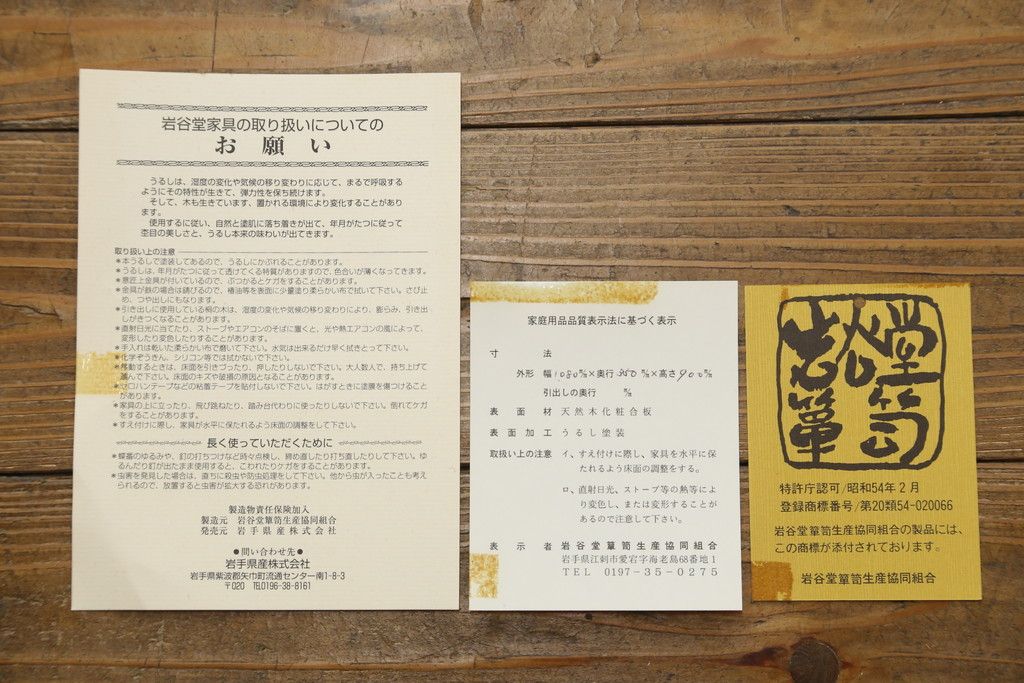 岩谷堂家具の取り扱いについての
お願い
うるしは、湿度の変化や気候の移り変わりに応じて、まるで呼吸する
ようにその特性が生きて、弾力性を保ち続けます。
そして、木も生きています、置かれる環境により変化することがあり
ます。
使用するに従い、自然と塗肌に落ち着きが出て、年月がたつに従って
杢目の美しさと、うるし本来の味わいが出てきます。
取り扱い上の注意
＊本うるしで塗装してあるので、うるしにかぶれることがあります。
＊うるしは、年月がたつに従って透けてくる特質がありますので、色合いが薄くなってきます。
＊意匠上金具が付いているので、ぶつかるとケガをすることがあります。
＊金具が鉄の場合は錆びるので、椿油等を表面に少量塗り柔らかい布で拭いて下さい。さび止
め、つや出しにもなります。
＊引き出しに使用している桐の木は、湿度の変化や気候の移り変わりにより、膨らみ、引き出
しがきつくなることがあります。
＊直射日光に当てたり、ストーブやエアコンのそばに置くと、光や熱エアコンの風によって、
変形したり変色したりすることがあります。
＊手入れは乾いた柔らかい布で磨いて下さい。水気は出来るだけ早く拭きとって下さい。
＊化学ぞうきん、シリコン等では拭かないで下さい。
＊移動するときは、床面を引きづったり、押したりしないで下さい。大人数人で、持ち上げて
運んで下さい。床面のキズや破損の原因となることがあります。
＊セロハンテープなどの粘着テープを貼付しないで下さい。はがすときに塗膜を傷つけること
があります。
＊家具の上に立ったり、飛び跳ねたり、踏み台代わりに使ったりしないで下さい。倒れてケガ
をすることがあります。
＊すえ付けに際し、家具が水平に保たれるよう床面の調整をして下さい。
長く使っていただくために
＊蝶番のゆるみや、釘の打ちつけなど時々点検し、締め直したり打ち直したりして下さい。ゆ
るんだり釘が出たまま使用すると、こわれたりケガをすることがあります。
＊虫害を発見した場合は、直ちに殺虫や防虫処理をして下さい。他から虫が入ったことも考え
られるので、放置すると虫害が拡大する恐れがあります。
製造物責任保険加入
製造元　岩谷堂簞笥生産協同組合
発売元　岩手県産株式会社
●問い合わせ先●
岩手県産株式会社
岩手県紫波郡矢巾町流通センター南1-8-3
〒020　TEL0196-38-8161
家庭用品品質表示法に基づく表示
寸　法
外形　幅1080㎜×奥行350㎜×高さ900㎜
引出しの奥行　㎜
表面材　天然木化粧合板
表面加工　うるし塗装
取扱い上の注意　イ、すえ付けに際し、家具を水平に保
たれるよう床面の調整をする。
ロ、直射日光、ストーブ等の熱等によ
り変色し、または変形することが
あるので注意して下さい。
表示者　岩谷堂簞笥生産協同組合
岩手県江刺市愛宕字海老島68番地1
TEL　0197-35-0275
岩谷堂簞笥
特許庁認可/昭和54年2月
登録商標番号/第20類54-020066
岩谷堂簞笥生産協同組合の製品には、
この商標が添付されております。
岩谷堂簞笥生産協同組合